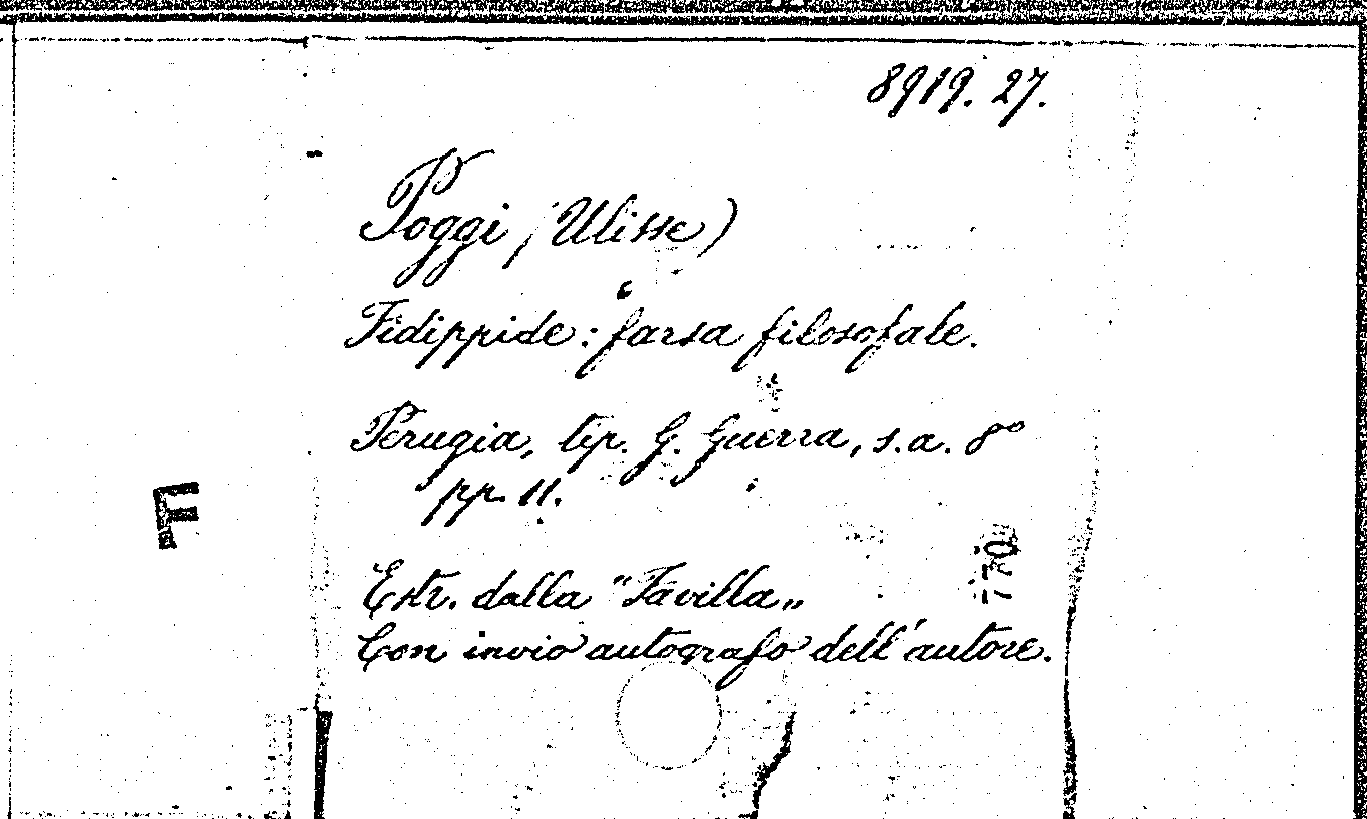 8919. 27.
Poggi (Ulisse)
Fidippide: farsa filosofale.
Perugia, tip. G. Guerra, s.a. 8°
pp. 11.
F
770
Estr. dalla "Favilla„
Con invio autografo dell'autore.